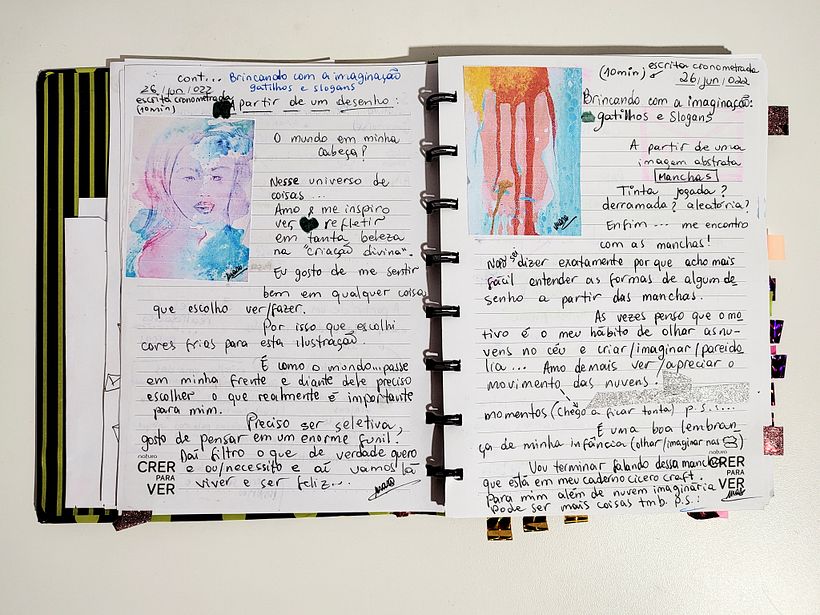 cont... Brincando com a imaginação
gatilhos e slogans
26/jun/022
escrita cronometrada
(10min)
A partir de um desenho:
O mundo em minha
cabeça?
Nesse universo de
coisas...
Amo e me inspiro
ver, refletir
em tanta beleza
na "criação divina".
Eu gosto de me sentir
bem em qualquer coisa
que escolho ver/fazer.
Por isso que escolhi
cores frias para esta ilustração.
É como o mundo... passe
em minha frente e diante dele preciso
escolher o que realmente é importante
para mim.
Preciso ser seletiva,
gosto de pensar em um enorme funil.
Daí filtro o que de verdade quero
e ou/necessito e aí vamos lá
viver e ser feliz...
natura
CRER
PARA
VER
(10min) escrita cronometrada
26/jun/022
Brincando com a imaginação:
gatilhos e slogans
A partir de uma
imagem abstrata
MANCHAS
Tinta jogada?
derramada? aleatória?
Enfim... me encontro
com as manchas!
Não sei dizer exatamente por que acho mais
fácil entender as formas de algum de
senho a partir das manchas.
As vezes penso que o mo
tivo é o meu hábito de olhar as nu-
vens no céu e criar/imaginar/pareido
lia... Amo demais ver/apreciar o
movimento das nuvens!
momentos (chego a ficar tonta) p.s....
É uma boa lembran
ça de minha infância (olhar/imaginar nas )
Vou terminar falando dessa mancha
que está em meu caderno cícero craft.
Para mim além de nuvem imaginária
Pode ser mais coisas tmb. p.s.:
natura
CRER
PARA
VER